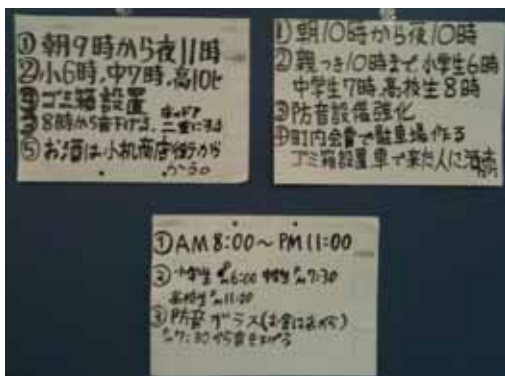 ①朝9時から夜11時
②小6時,中7時,高10
ゴミ箱設置
8時から音下げる,二重にする
⑤お酒は小机商店街から
かう。
①朝10時から夜10時
②親つき10時まで小学生6時
中学生7時,高校生8時
③防音設備強化
④町内会費で駐車場作る
ゴミ箱設置車で来た人に酒
①AM8:00～PM11:00
②小学生 6:00 中学生 7:30
高校生 11:00
③防音ガラス(お金は
7:30から音を